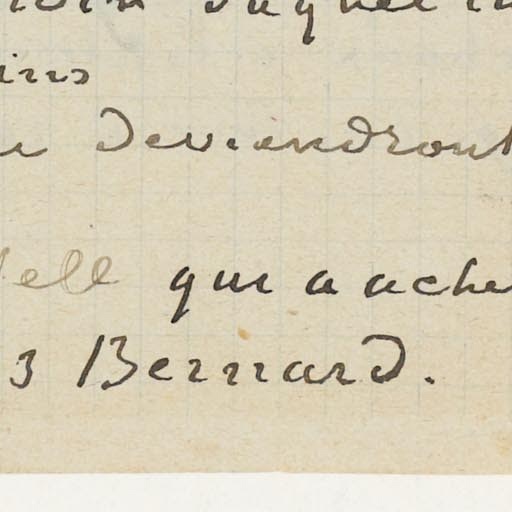 ins
deviendront
ell qui a ache
3 Bernard.